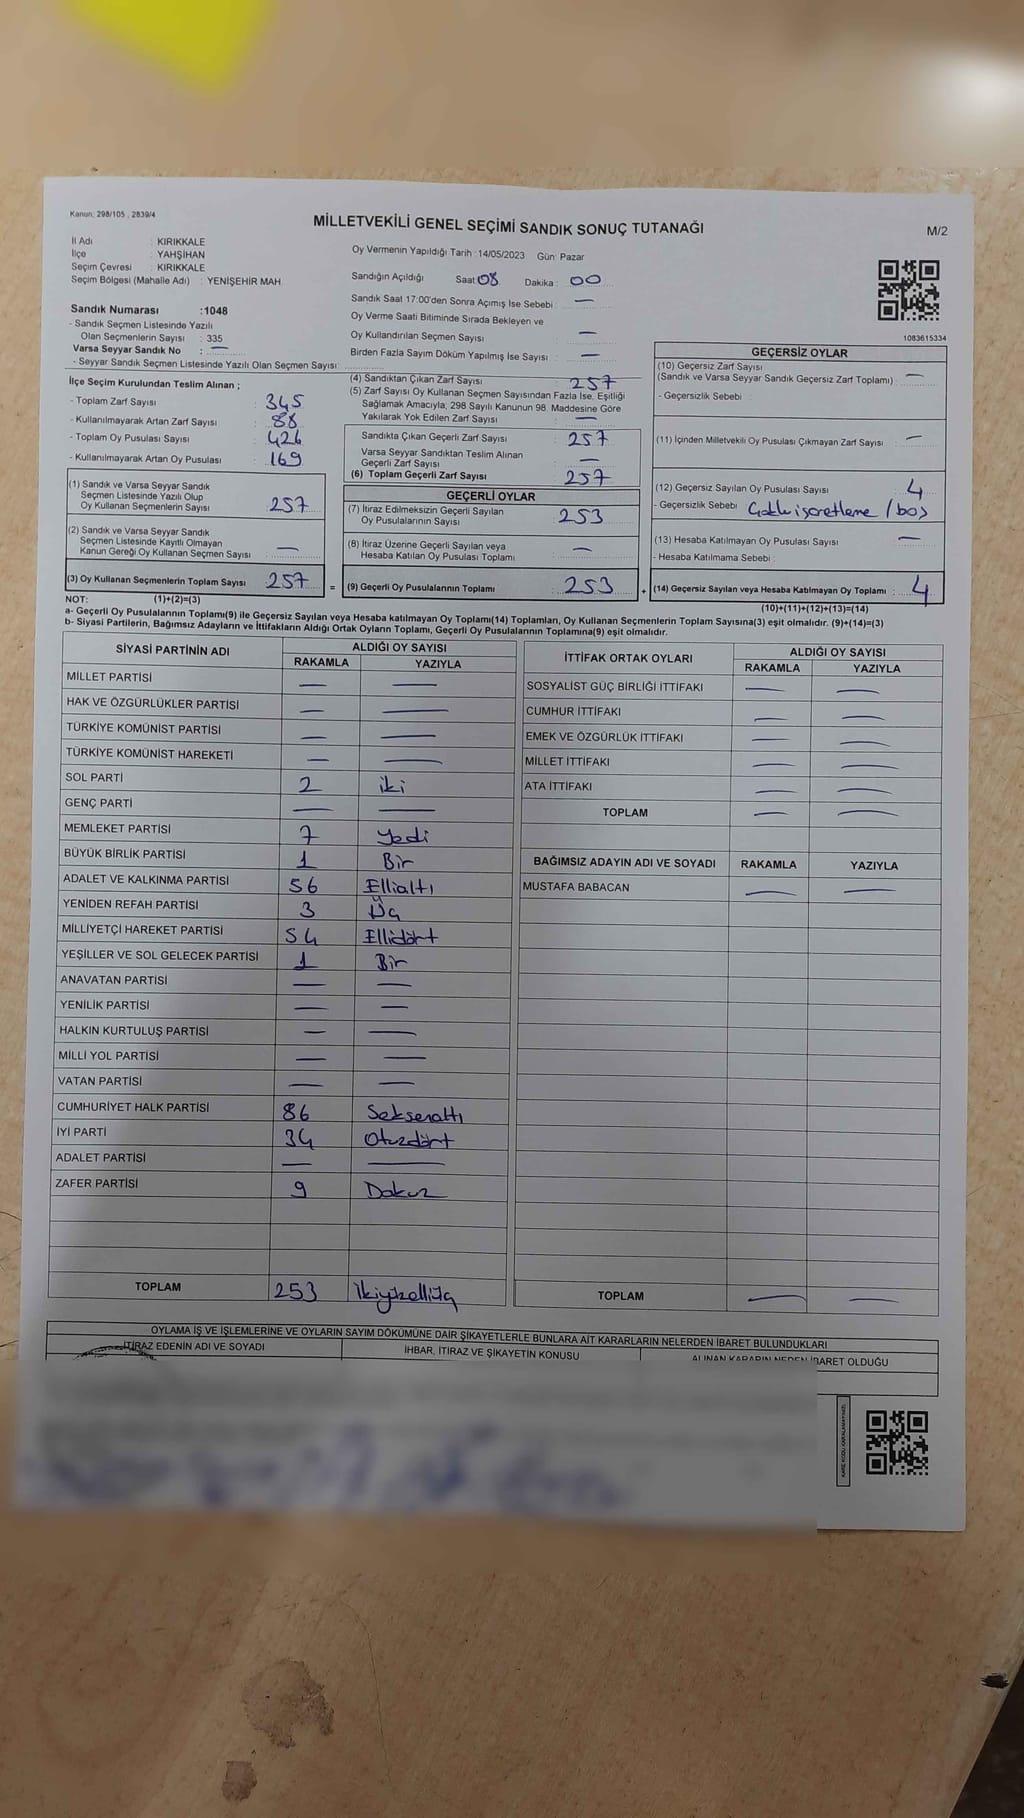 Kanun: 298/105 , 2839/4
MİLLETVEKİLİ GENEL SEÇİMİ SANDIK SONUÇ TUTANAĞI
M/2
İl Adı : KIRIKKALE
İlçe : YAHŞİHAN
Seçim Çevresi : KIRIKKALE
Seçim Bölgesi (Mahalle Adı) : YENİŞEHİR MAH.
Sandık Numarası :1048
- Sandık Seçmen Listesinde Yazılı
Olan Seçmenlerin Sayısı : 335
Varsa Seyyar Sandık No : —
- Seyyar Sandık Seçmen Listesinde Yazılı Olan Seçmen Sayısı :
Oy Vermenin Yapıldığı Tarih :14/05/2023 Gün: Pazar
Sandığın Açıldığı Saat: 08 Dakika : 00
Sandık Saat 17:00'den Sonra Açımış İse Sebebi : —
Oy Verme Saati Bitiminde Sırada Bekleyen ve
Oy Kullandırılan Seçmen Sayısı : —
Birden Fazla Sayım Döküm Yapılmış İse Sayısı : —
1083615334
İlçe Seçim Kurulundan Teslim Alınan ;
- Toplam Zarf Sayısı : 345
- Kullanılmayarak Artan Zarf Sayısı : 88
- Toplam Oy Pusulası Sayısı : 426
- Kullanılmayarak Artan Oy Pusulası : 169
(1) Sandık ve Varsa Seyyar Sandık
Seçmen Listesinde Yazılı Olup
Oy Kullanan Seçmenlerin Sayısı : 257
(2) Sandık ve Varsa Seyyar Sandık
Seçmen Listesinde Kayıtlı Olmayan
Kanun Gereği Oy Kullanan Seçmen Sayısı : —
(3) Oy Kullanan Seçmenlerin Toplam Sayısı : 257 =
(4) Sandıktan Çıkan Zarf Sayısı : 257
(5) Zarf Sayısı Oy Kullanan Seçmen Sayısından Fazla İse, Eşitliği
Sağlamak Amacıyla, 298 Sayılı Kanunun 98. Maddesine Göre
Yakılarak Yok Edilen Zarf Sayısı : —
Sandıkta Çıkan Geçerli Zarf Sayısı : 257
Varsa Seyyar Sandıktan Teslim Alınan
Geçerli Zarf Sayısı : —
(6) Toplam Geçerli Zarf Sayısı : 257
GEÇERLİ OYLAR
(7) İtiraz Edilmeksizin Geçerli Sayılan
Oy Pusulalarının Sayısı : 253
(8) İtiraz Üzerine Geçerli Sayılan veya
Hesaba Katılan Oy Pusulası Toplamı : —
(9) Geçerli Oy Pusulalarının Toplamı : 253 +
GEÇERSİZ OYLAR
(10) Geçersiz Zarf Sayısı
(Sandık ve Varsa Seyyar Sandık Geçersiz Zarf Toplamı) : —
- Geçersizlik Sebebi :
(11) İçinden Milletvekili Oy Pusulası Çıkmayan Zarf Sayısı : —
(12) Geçersiz Sayılan Oy Pusulası Sayısı : 4
- Geçersizlik Sebebi : Çoklu işaretleme / boş
(13) Hesaba Katılmayan Oy Pusulası Sayısı : —
- Hesaba Katılmama Sebebi :
(14) Geçersiz Sayılan veya Hesaba Katılmayan Oy Toplamı : 4
NOT: (1)+(2)=(3) (10)+(11)+(12)+(13)=(14)
a- Geçerli Oy Pusulalarının Toplamı(9) ile Geçersiz Sayılan veya Hesaba katılmayan Oy Toplamı(14) Toplamları, Oy Kullanan Seçmenlerin Toplam Sayısına(3) eşit olmalıdır. (9)+(14)=(3)
b- Siyasi Partilerin, Bağımsız Adayların ve İttifakların Aldığı Ortak Oyların Toplamı, Geçerli Oy Pusulalarının Toplamına(9) eşit olmalıdır.
SİYASİ PARTİNİN ADI ALDIĞI OY SAYISI
RAKAMLA YAZIYLA
MİLLET PARTİSİ — —
HAK VE ÖZGÜRLÜKLER PARTİSİ — —
TÜRKİYE KOMÜNİST PARTİSİ — —
TÜRKİYE KOMÜNİST HAREKETİ — —
SOL PARTİ 2 iki
GENÇ PARTİ — —
MEMLEKET PARTİSİ 7 Yedi
BÜYÜK BİRLİK PARTİSİ 1 Bir
ADALET VE KALKINMA PARTİSİ 56 Ellialtı
YENİDEN REFAH PARTİSİ 3 Üç
MİLLİYETÇİ HAREKET PARTİSİ 54 Ellidört
YEŞİLLER VE SOL GELECEK PARTİSİ 1 Bir
ANAVATAN PARTİSİ — —
YENİLİK PARTİSİ — —
HALKIN KURTULUŞ PARTİSİ — —
MİLLİ YOL PARTİSİ — —
VATAN PARTİSİ — —
CUMHURİYET HALK PARTİSİ 86 Seksenaltı
İYİ PARTİ 34 Otuzdört
ADALET PARTİSİ — —
ZAFER PARTİSİ 9 Dokuz
TOPLAM 253 İkiyüzelliüç
İTTİFAK ORTAK OYLARI ALDIĞI OY SAYISI
RAKAMLA YAZIYLA
SOSYALİST GÜÇ BİRLİĞİ İTTİFAKI — —
CUMHUR İTTİFAKI — —
EMEK VE ÖZGÜRLÜK İTTİFAKI — —
MİLLET İTTİFAKI — —
ATA İTTİFAKI — —
TOPLAM — —
BAĞIMSIZ ADAYIN ADI VE SOYADI RAKAMLA YAZIYLA
MUSTAFA BABACAN — —
TOPLAM — —
OYLAMA İŞ VE İŞLEMLERİNE VE OYLARIN SAYIM DÖKÜMÜNE DAİR ŞİKAYETLERLE BUNLARA AİT KARARLARIN NELERDEN İBARET BULUNDUKLARI
İTİRAZ EDENİN ADI VE SOYADI İHBAR, İTİRAZ VE ŞİKAYETİN KONUSU ALINAN KARARIN NEDEN İBARET OLDUĞU
KARE KODU KARALAMAYINIZ!